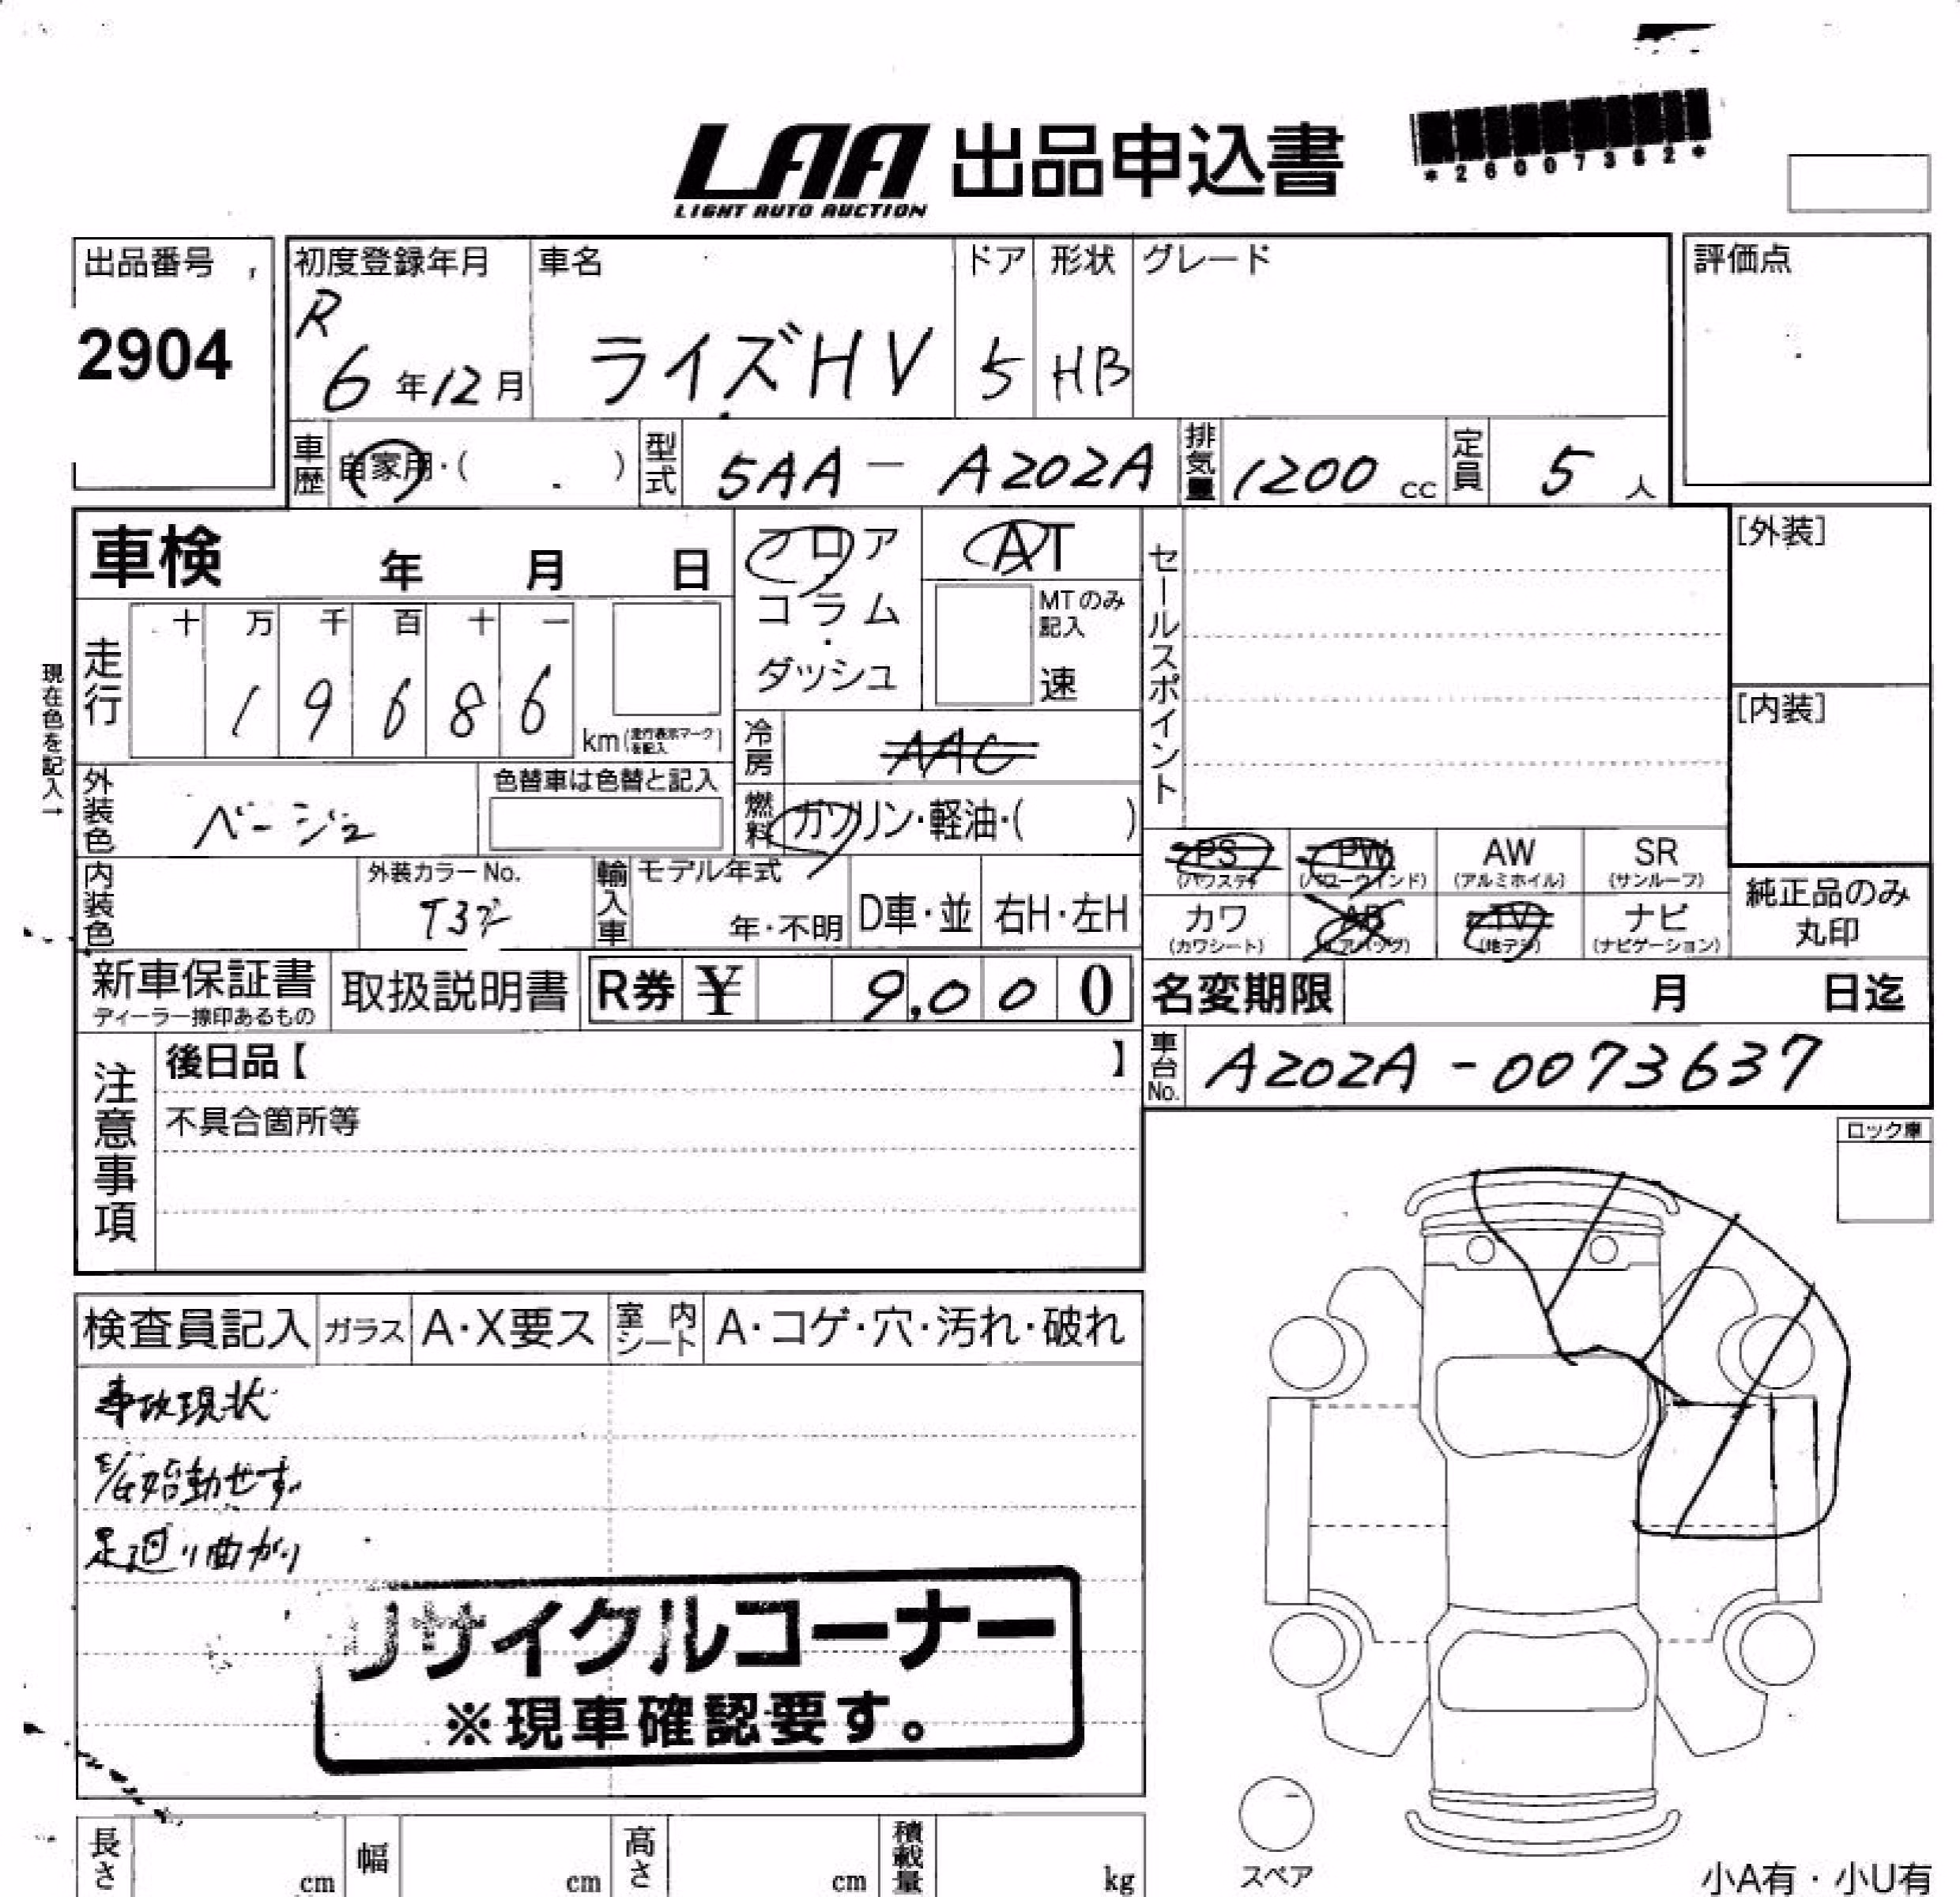 LAA 出品申込書
LIGHT AUTO AUCTION
*26007362*
出品番号
2904
初度登録年月
R
6年12月
車名
ライズHV
ドア
5
形状
HB
グレード
評価点
車歴 自家用・( )
型式 5AA-A202A
排気量 1200 cc
定員 5 人
車検 年 月 日
フロア
コラム
ダッシュ
AT
MTのみ
記入
速
セールスポイント
[外装]
[内装]
現在色を記入→
走行
十 万 千 百 十 一
1 9 6 8 6
km (走行表示マークを記入)
冷房 AAC
燃料 ガソリン・軽油・( )
外装色 ベージュ
色替車は色替と記入
内装色
外装カラーNo.
T32
輸入車
モデル年式
年・不明
D車・並
右H・左H
PS (パワステ)
PW (パワーウインド)
AW (アルミホイル)
SR (サンルーフ)
カワ (カワシート)
AB (エアバッグ)
TV (地デジ)
ナビ (ナビゲーション)
純正品のみ
丸印
新車保証書
ディーラー捺印あるもの
取扱説明書
R券 ¥ 9,000
名変期限 月 日迄
車台No. A202A-0073637
注意事項
後日品【 】
不具合箇所等
ロック庫
検査員記入 ガラス A・X要ス 室内シート A・コゲ・穴・汚れ・破れ
事故現状
E/G始動せず
足廻り曲がり
リサイクルコーナー
※現車確認要す。
スペア
長さ cm 幅 cm 高さ cm 積載量 kg
小A有・小U有